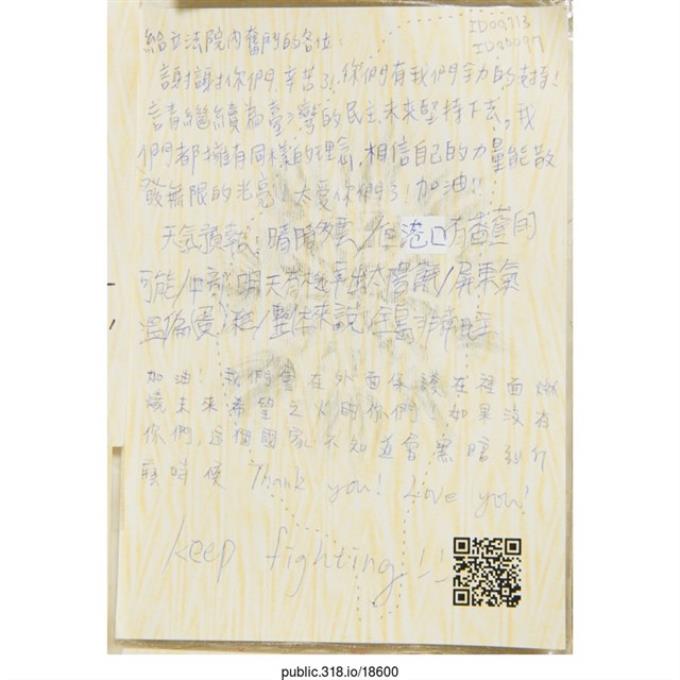 ID09713
ID20097
給立法院內奮鬥的各位：
謝謝你們,辛苦了!你們有我們全力的支持!
請繼續為臺灣的民主、未來堅持下去。我
們都擁有同樣的理念,相信自己的力量能散
發無限的光亮!太愛你們了!加油!!
天氣預報：晴時多雲/但港口有
可能/中部明天太陽/屏東氣
溫偏/整體來說/全島非常
加油！我們會在外面保護在裡面燃
燒未來希望之火的你們。如果沒有
你們,這個國家不知道會黑暗到什
麼時候 Thank you! Love you!
keep fighting!!
public.318.io/18600